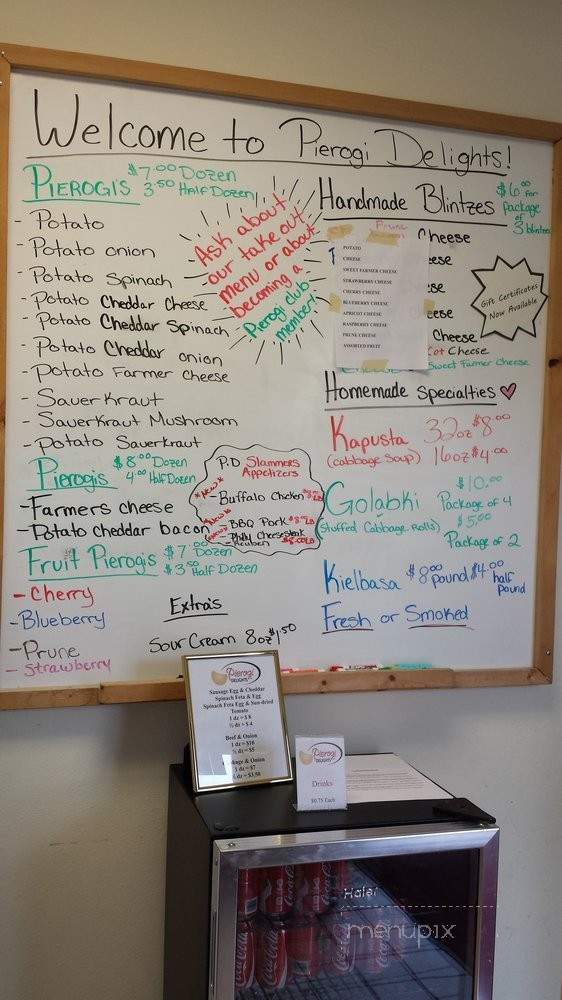 Welcome to Pierogi Delights!
PIEROGI'S $7.00 Dozen
3.50 Half Dozen
- Potato
- Potato onion
- Potato Spinach
- Potato Cheddar Cheese
- Potato Cheddar Spinach
- Potato Cheddar onion
- Potato Farmer Cheese
- Sauer Kraut
- Sauerkraut Mushroom
- Potato Sauerkraut
Pierogis $8.00 Dozen
4.00 Half Dozen
- Farmers cheese
- Potato cheddar bacon
Fruit Pierogis $7 Dozen
$3.50 Half Dozen
- Cherry
- Blueberry
- Prune
- Strawberry
Ask about
our take out
menu or about
becoming a
Pierogi club
member!
P.D Slammers
Appetizers
*New*
- Buffalo Chicken
*New*
- BBQ Pork
- Philly Cheesesteak
- Reuben
Extra's
Sour Cream 8oz $1.50
Handmade Blintzes
$6.00 for
package
of
3 blintzes
Prune
Cheese
POTATO
CHEESE
SWEET FARMER CHEESE
STRAWBERRY CHEESE
CHERRY CHEESE
BLUEBERRY CHEESE
APRICOT CHEESE
RASPBERRY CHEESE
PRUNE CHEESE
ASSORTED FRUIT
Cheese
Cot Cheese
Sweet Farmer Cheese
Gift Certificates
Now Available
Homemade Specialties
Kapusta 32oz $8.00
(cabbage Soup) 16oz $4.00
Golabki $10.00
Package of 4
(Stuffed Cabbage Rolls) $5.00
Package of 2
Kielbasa $8.00 pound $4.00 half
pound
Fresh or Smoked
Pierogi
DELIGHTS
Sausage Egg & Cheddar
Spinach Feta & Egg
Spinach Feta Egg & Sun-dried
Tomato
1 dz = $8
½ dz = $4
Beef & Onion
1 dz = $10
½ dz = $5
& Onion
1 dz = $7
dz = $3.50
Pierogi
DELIGHTS
Drinks
$0.75 Each
Haier
Coca-Cola
menupix